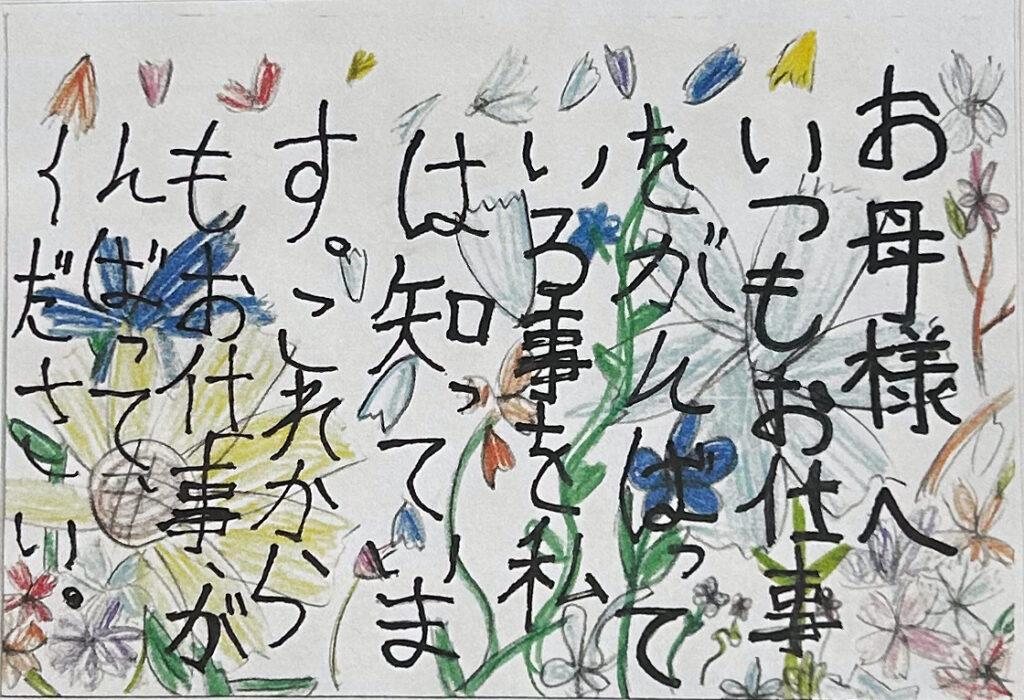 お母様へ
いつもお仕事
をがんばって
いる事を私
は知っていま
す。これから
もお仕事が
んばってく
ださい。